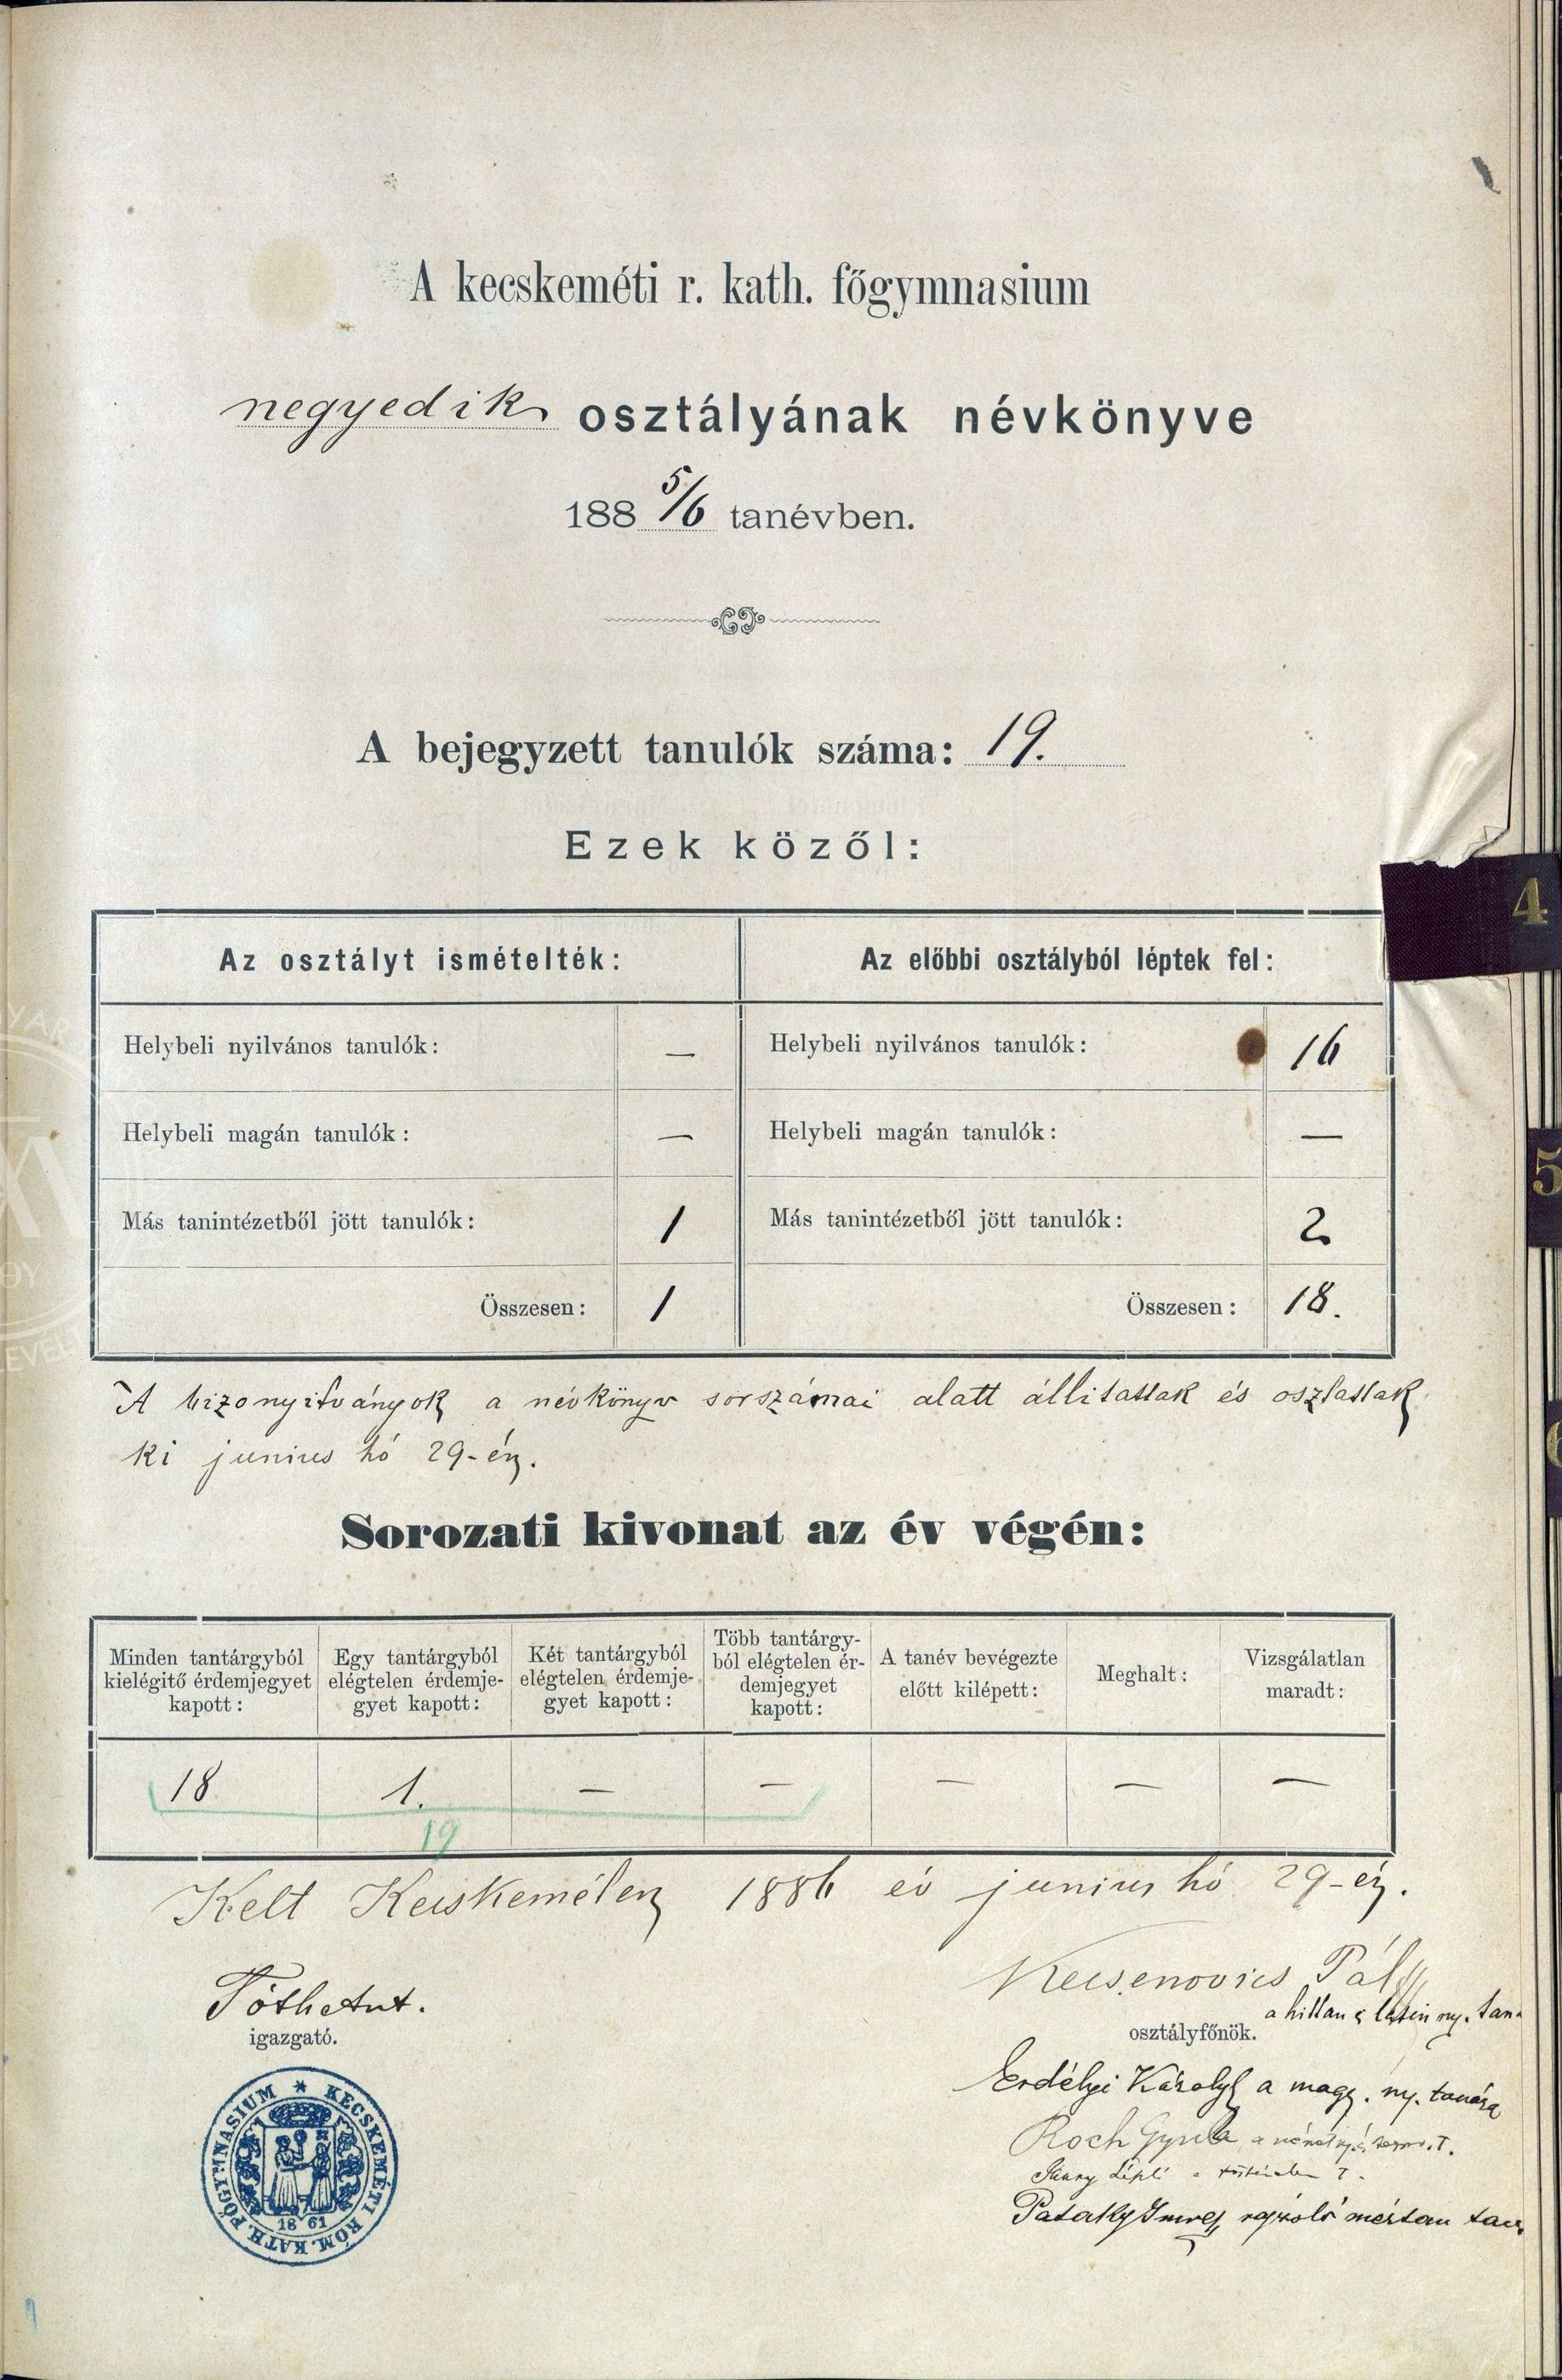 A kecskeméti r. kath. főgymnasium
negyedik osztályának névkönyve
188 5/6 tanévben.
A bejegyzett tanulók száma: 19.
Ezek közől:
4
Az osztályt ismételték: Az előbbi osztályból léptek fel:
Helybeli nyilvános tanulók: — Helybeli nyilvános tanulók: 16
Helybeli magán tanulók: — Helybeli magán tanulók: —
5
Más tanintézetből jött tanulók: 1 Más tanintézetből jött tanulók: 2
Összesen: 1 Összesen: 18.
A bizonyitványok a névkönyv sorszámai alatt állitattak és osztattak
ki junius hó 29-én.
Sorozati kivonat az év végén:
Minden tantárgyból kielégitő érdemjegyet kapott:
Egy tantárgyból elégtelen érdemje-gyet kapott:
Két tantárgyból elégtelen érdemje-gyet kapott:
Több tantárgy-ból elégtelen ér-demjegyet kapott:
A tanév bevégezte előtt kilépett:
Meghalt:
Vizsgálatlan maradt:
18 1. — — — — —
19
Kelt Kecskeméten 1886 év junius hó 29-én.
Tóth Ant.
igazgató.
Pál
a hittan s latin ny. tan.
osztályfőnök.
Erdélyi Károly a magy. ny. tanára
Roch Gyula a német ny. T.
Pataky Imre, rajzoló mértan tan.
KECSKEMÉTI RÓM. KATH. FŐGYMNASIUM
1861